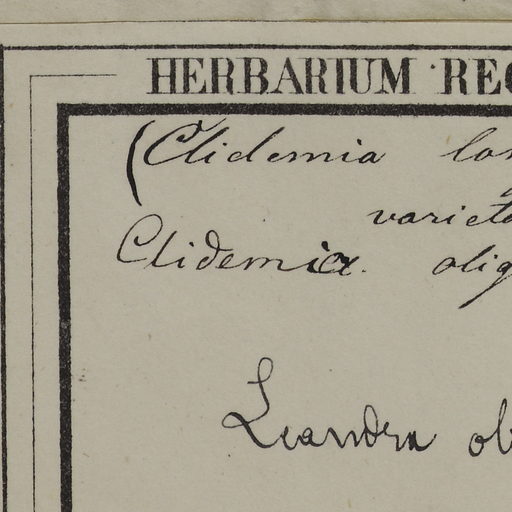 HERBARIUM REG
(Clidemia lon
varieta
Clidemia. olig
Leandra ob